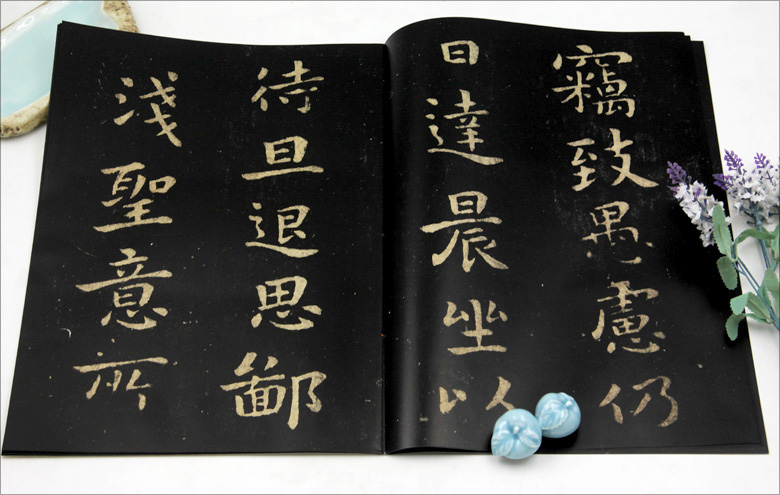 竊致愚慮仍
日達晨坐以
待旦退思鄙
淺聖意所